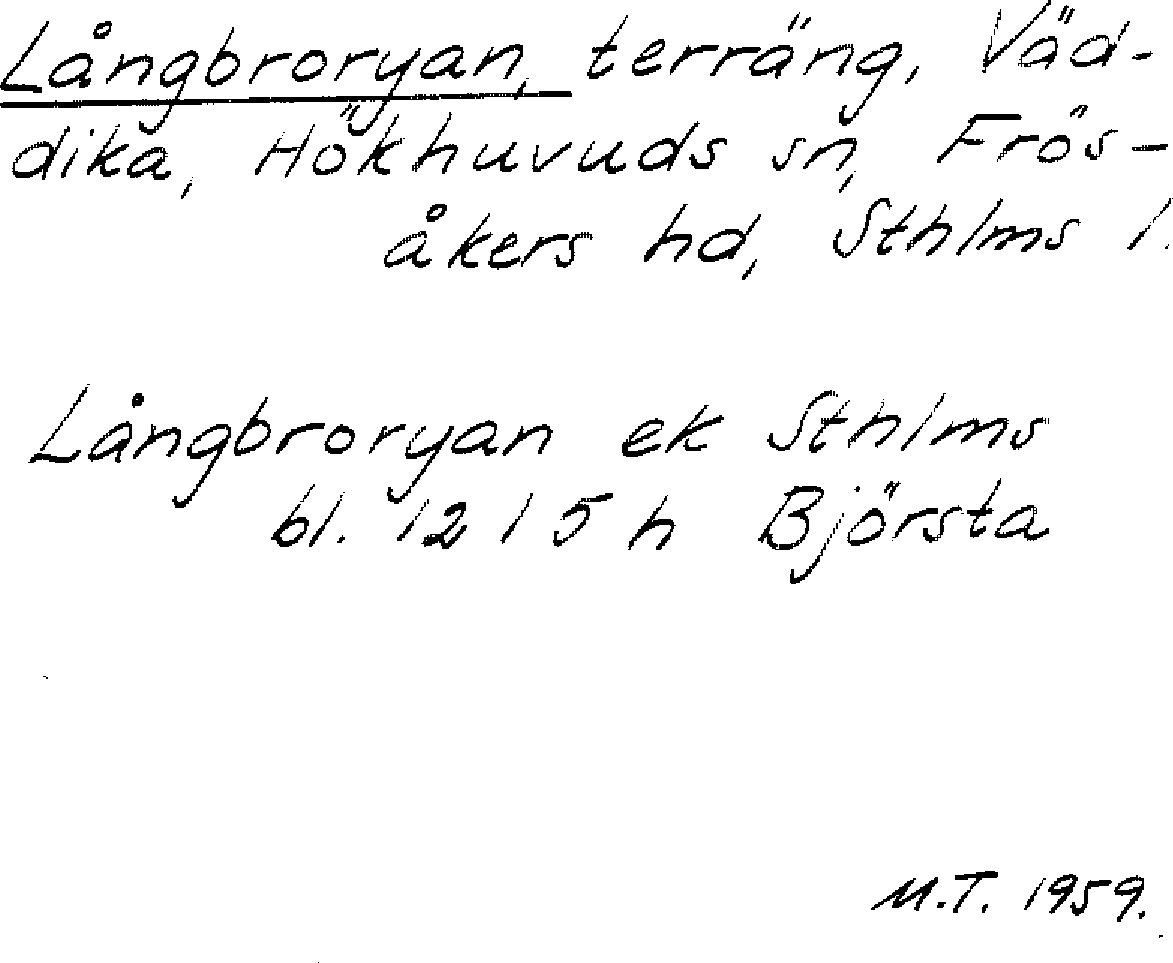 Långbroryan, terräng, Väd-
dika, Hökhuvuds sn, Frös-
åkers hd, Sthlms l.
Långbroryan ek Sthlms
bl. 12 I 5 h Björsta
M.T. 1959.